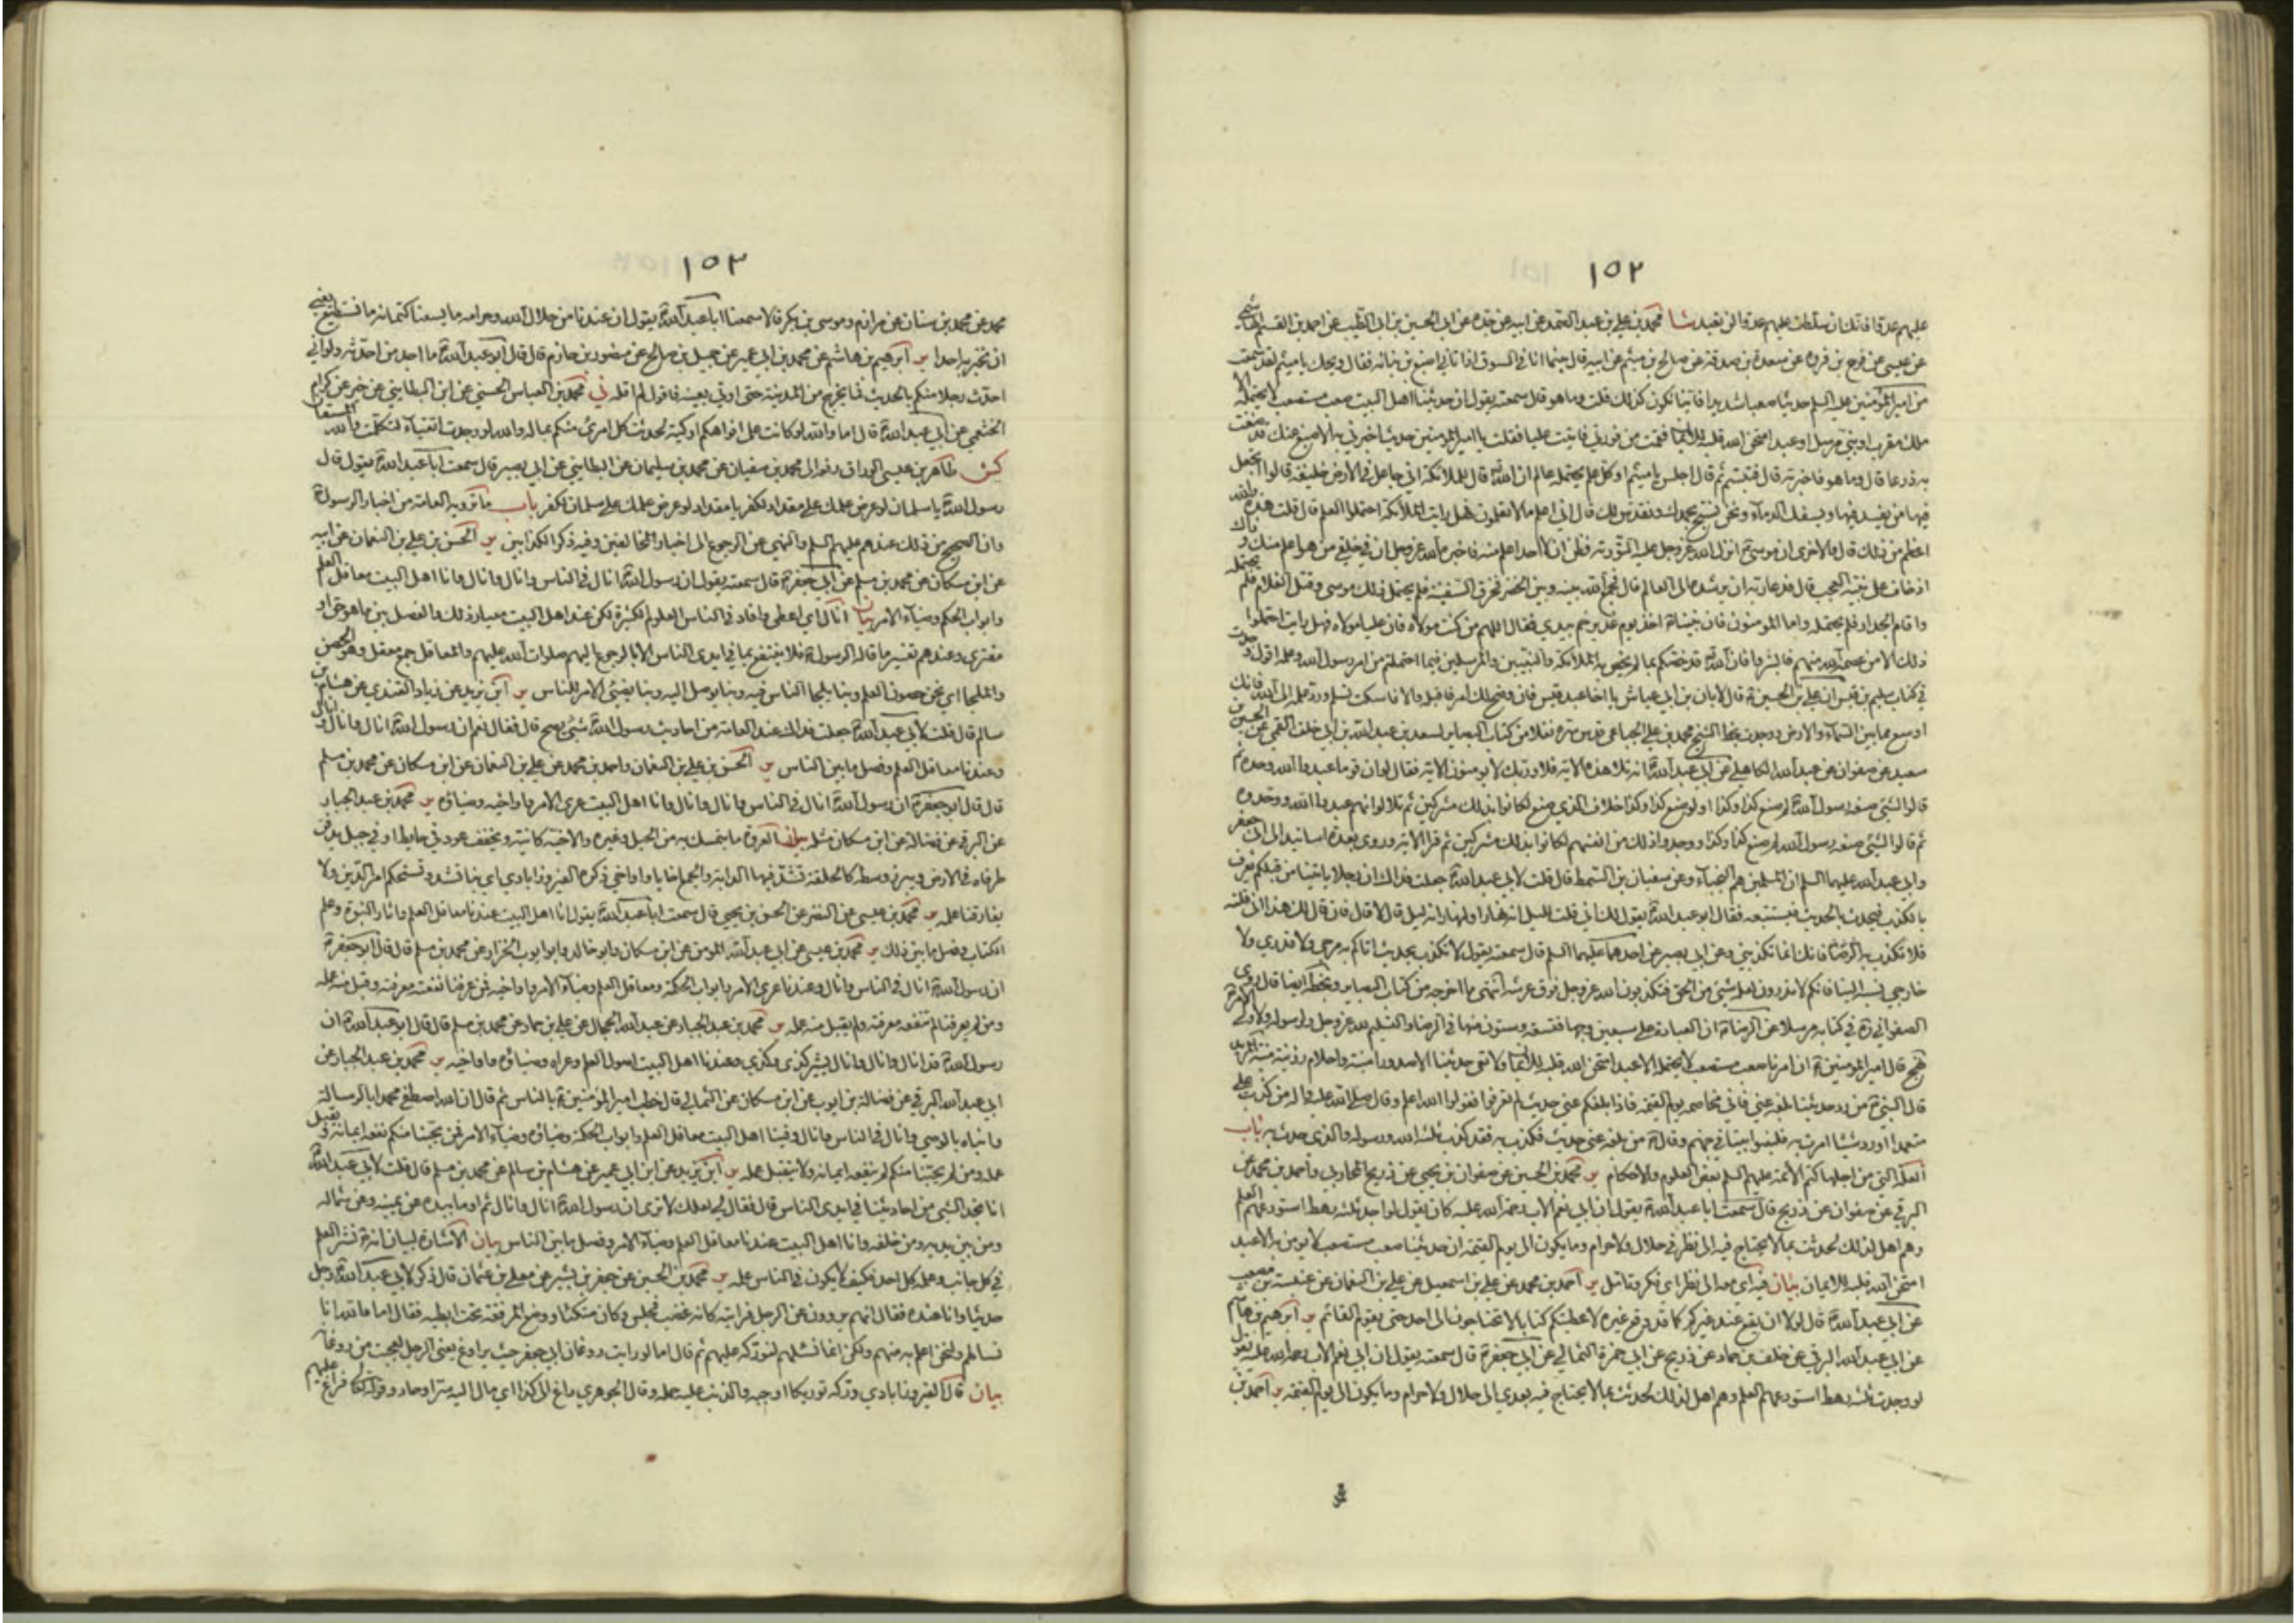 ١٥٢
عليهم عدوا فانك ان سلطت عليهم عدوا لن تعبد
عن عيسى عن فرج بن فروه عن مسعدة بن صدقة عن صالح بن ميثم عن ابيه قال بينما انا في السوق اذ اتاني اصبغ بن نباته فقال ويحك يا ميثم لقد سمعت
من امير المؤمنين عليه السلم حديثا صعبا شديدا فاينا نكون كذلك قلت وما هو قال سمعته يقول ان حديثنا اهل البيت صعب مستصعب لا يحتمله الا
ملك مقرب او نبي مرسل او عبد امتحن الله قلبه للايمان فقمت من فورتي فاتيت عليا فقلت يا امير المؤمنين حديث اخبرني به الاصبغ عنك قد ضقت
به ذرعا قال وما هو فاخبرته قال فتبسم ثم قال اجلس يا ميثم او كل علم يحتمله عالم ان الله قال للملائكة اني جاعل في الارض خليفة قالوا اتجعل
فيها من يفسد فيها ويسفك الدماء ونحن نسبح بحمدك ونقدس لك قال اني اعلم ما لا تعلمون فهل رايت الملائكة احتملوا العلم قال قلت هذه والله
اعظم من ذلك قال والاخرى ان موسى انزل الله عز وجل عليه التورية فظن ان لا احد اعلم منه فاخبره الله عز وجل ان في خلقي من هو اعلم منك وذاك
اذ خاف على نبيه العجب قال فدعا ربه ان يرشده الى العالم قال فجمع الله بينه وبين الخضر فخرق السفينة فلم يحتمل ذلك موسى وقتل الغلام فلم يحتمله
واقام الجدار فلم يحتمله واما المؤمنون فان نبينا اخذ يوم غدير خم بيدي فقال اللهم من كنت مولاه فان عليا مولاه فهل رايت احتملوا
ذلك الا من عصمه الله منهم فابشروا فان الله قد خصكم بما لم يخص به الملائكة والنبيين والمرسلين فيما احتملتم من امر رسول الله وعلمه اقول وجدت
في كتاب سليم بن قيس ان علي بن الحسين قال لابان بن ابي عياش يا اخا عبد قيس فان وضح لك امر فاقبله والا فاسكت تسلم ورد علمه الى الله فانك
اوسع مما بين السماء والارض ووجدت بخط الشيخ محمد بن علي الجباعي قدس سره نقلا من كتاب البصاير لسعد بن عبد الله بن ابي خلف القمي عن الحسين بن
سعيد عن صفوان عن عبد الله الكاهلي عن ابي عبد الله انه تلا هذه الاية فلا وربك لا يؤمنون الاية فقال لو ان قوما عبدوا الله وحده ثم
قالوا لشيء صنعه رسول الله لم صنع كذا وكذا او لو صنع كذا وكذا خلاف الذي صنع لكانوا بذلك مشركين ثم تلا لو انهم عبدوا الله ووحدوه
ثم قالوا لشيء صنعه رسول الله لم صنع كذا وكذا ووجدوا ذلك من انفسهم لكانوا بذلك مشركين ثم قرا الاية وروى بعدة اسانيد الى ابي جعفر
وابي عبد الله عليهما السلم ان المسلمين هم النجباء وعن سفيان بن السمط قال قلت لابي عبد الله جعلت فداك ان رجلا ياتينا من قبلكم يعرف
بالكذب فيحدث بالحديث فيستبشعه فقال ابو عبد الله يقول لك اني قلت لليل انه نهار او للنهار انه ليل قال لا قال فان قال لك هذا اني قلته
فلا تكذب به فانك انما تكذبني وعن ابي بصير عن احدهما عليهما السلم قال سمعته يقول لا تكذب بحديث اتاكم به مرجي ولا قدري ولا
خارجي نسبه الينا فانكم لا تدرون لعله شيء من الحق فتكذبون الله عز وجل فوق عرشه انتهى ما اخرجه من كتاب البصاير وبخطه ايضا قال روى
الصفواني ره في كتابه مرسلا عن الرضا ان العبادة على سبعين وجها فتسعة وستون منها في الرضا والتسليم لله عز وجل ولرسوله ولاولي الامر
نهج قال امير المؤمنين ان امرنا صعب مستصعب لا يحتمله الا عبد امتحن الله قلبه للايمان ولا تعي حديثنا الا صدور امينة واحلام رزينة
قال النبي من رد حديثا بلغه عني فانا مخاصمه يوم القيمة فاذا بلغكم عني حديث لم تعرفوا فقولوا الله اعلم وقال صلى الله عليه واله من كذب علي
متعمدا او رد شيئا امرت به فليتبوا بيتا في جهنم وقال من بلغه عني حديث فكذب به فقد كذب ثلثة الله ورسوله والذي حدث به باب
العلة التي من اجلها كتم الائمة عليهم السلم بعض العلوم والاحكام ير محمد بن الحسين عن صفوان بن يحيى عن ذريح المحاربي واحمد بن محمد عن
البرقي عن صفوان عن ذريح قال سمعت ابا عبد الله يقول ان ابي نعم الاب رحمة الله عليه كان يقول لو اجد ثلثة رهط استودعهم العلم
وهم اهل لذلك لحدثت بما لا يحتاج فيه الى نظر في حلال ولا حرام وما يكون الى يوم القيمة ان حديثنا صعب مستصعب لا يؤمن به الا عبد
امتحن الله قلبه للايمان بيان فيه اي معه الى نظر اي فكر وتامل ير احمد بن محمد عن علي بن اسمعيل عن علي بن النعمان عن عنبسة بن مصعب
عن ابي عبد الله قال لولا ان يقع عند غيركم كما قد وقع غيره لاعطيتكم كتابا لا تحتاجون الى احد حتى يقوم القائم ير ابرهيم بن هاشم
عن ابي عبد الله البرقي عن خلف بن حماد عن ذريح عن ابي حمزة الثمالي عن ابي جعفر قال سمعته يقول ان ابي نعم الاب رحمة الله عليه يقول
لو وجدت ثلثة رهط استودعهم العلم وهم اهل لذلك لحدثت بما لا يحتاج فيه بعدي الى حلال ولا حرام وما يكون الى يوم القيمة ير احمد بن
١٥٣
محمد عن محمد بن سنان عن مرازم وموسى بن بكر قالا سمعنا ابا عبد الله يقول ان عندنا من حلال الله وحرامه ما يسعنا كتمانه ما نستطيع يعني
ان نخبر به احدا ير ابرهيم بن هاشم عن محمد بن ابي عمير عن جميل بن صالح عن منصور بن حازم قال قال ابو عبد الله ما اجد من احدثه ولو اني
احدث رجلا منكم بالحديث فما يخرج من المدينة حتى اوتي بعينه فاقول لم اقله ني محمد بن العباس الحسني عن ابن البطايني عن خير عن كرام
الخثعمي عن ابي عبد الله قال اما والله لو كانت على افواهكم اوكية لحدثت كل امرئ منكم بما له والله لو وجدت اتقياء لتكلمت والله المستعان
كش طاهر بن عيسى الوراق رفعه الى محمد بن سفيان عن محمد بن سليمان عن البطايني عن ابي بصير قال سمعت ابا عبد الله يقول قال
رسول الله يا سلمان لو عرض علمك على مقداد لكفر يا مقداد لو عرض علمك على سلمان لكفر باب ما ترويه العامة من اخبار الرسول
وان الصحيح من ذلك عندهم عليهم السلم والنهي عن الرجوع الى اخبار المخالفين وفيه ذكر الكذابين ير الحسن بن علي بن النعمان عن ابيه
عن ابن مسكان عن محمد بن مسلم عن ابي جعفر قال سمعته يقول ان رسول الله انال في الناس وانال وانال وانا اهل البيت معاقل العلم
وابواب الحكم وضياء الامر بيان انال اي اعطى وافاد في الناس العلوم الكثيرة لكن عند اهل البيت معيار ذلك والفصل بين ما هو حق او
مفترى وعندهم تفسير ما قاله الرسول فلا ينتفع بما في ايدي الناس الا بالرجوع اليهم صلوات الله عليهم والمعاقل جمع معقل وهو الحصن
والملجا اي نحن حصون العلم وبنا يلجا الناس فيه وبنا يوصل اليه وبنا يضئ الامر للناس ير ابن يزيد عن زياد القندي عن هشام بن
سالم قال قلت لابي عبد الله جعلت فداك عند العامة من احاديث رسول الله شيء يصح قال فقال نعم ان رسول الله انال وانال وانال
وعندنا معاقل العلم وفصل ما بين الناس ير الحسن بن علي بن النعمان واحمد بن محمد عن علي بن النعمان عن ابن مسكان عن محمد بن مسلم
قال قال ابو جعفر ان رسول الله انال في الناس وانال وانال وانا اهل البيت عرى الامر واواخيه وضياؤه ير محمد بن عبد الجبار
عن البرقي عن فضالة عن ابن مسكان مثله بيان العروة ما يتمسك به من الحبل وغيره والاخية كابية ويخفف عود في حايط او في حبل يدفن
طرفاه في الارض ويبرز وسطه كالحلقة تشد فيها الدابة والجمع اخايا واواخي ذكره الفيروزابادي اي بنا يشد ويستحكم امر الدين ولا
يفارقنا علمه ير محمد بن عيسى عن النضر عن الحسن بن يحيى قال سمعت ابا عبد الله يقول انا اهل البيت عندنا معاقل العلم واثار النبوة وعلم
الكتاب وفصل ما بين ذلك ير محمد بن عيسى عن ابي عبد الله المؤمن عن ابن مسكان وابو خالد وابو ايوب الخزاز عن محمد بن مسلم قال قال ابو جعفر
ان رسول الله انال في الناس وانال وعندنا عرى الامر وابواب الحكمة ومعاقل العلم وضياء الامر واواخيه فمن عرفنا نفعته معرفته وقبل منه عمله
ومن لم يعرفنا لم تنفعه معرفته ولم يقبل منه عمله ير محمد بن عبد الجبار عن عبد الله الحجال عن علي بن حماد عن محمد بن مسلم قال قال ابو عبد الله ان
رسول الله قد انال وانال وانال يشير كذى وكذي وعندنا اهل البيت اصول العلم وعراه وضياؤه واواخيه ير محمد بن عبد الجبار عن
ابي عبد الله البرقي عن فضالة بن ايوب عن ابن مسكان عن الثمالي قال خطب امير المؤمنين بالناس ثم قال ان الله اصطفى محمدا بالرسالة
وانباه بالوحي وانال في الناس وانال وفينا اهل البيت معاقل العلم وابواب الحكمة وضياؤه وضياء الامر فمن يحبنا منكم نفعه ايمانه ويقبل
عمله ومن لم يحبنا منكم لم ينفعه ايمانه ولا يتقبل عمله ير ابن يزيد عن ابن ابي عمير عن هشام بن سالم عن محمد بن مسلم قال قلت لابي عبد الله
انا نجد الشيء من احاديثنا في ايدي الناس قال فقال لي لعلك لا ترى ان رسول الله انال وانال ثم اوما بيده عن يمينه وعن شماله
ومن بين يديه ومن خلفه وانا اهل البيت عندنا معاقل العلم وضياء الامر وفصل ما بين الناس بيان الاشارة لبيان انه نشر العلم
في كل جانب وعلمه كل احد فكيف لا يكون في الناس علمه ير محمد بن الحسين عن جعفر بن بشير عن معلى بن عثمان قال ذكر لابي عبد الله رجل
حديثا وانا عنده فقال انهم يروون عن الرجل فرايته كانه غضب فجلس وكان متكئا ووضع المرفقة تحت ابطيه فقال اما والله انا
نسالهم ولنحن اعلم به منهم ولكن انما نسئلهم لنوركه عليهم ثم قال اما لو رايت روغان ابي جعفر حيث يراوغ يعني الرجل لعجبت من روغانه
بيان قال الفيروزابادي وركه توريكا اوجبه والذنب عليه حمله وقال الجوهري راغ الى كذا اي مال اليه سرا وحاد وقوله تعالى فراغ عليهم